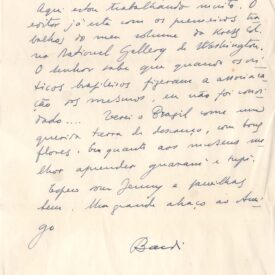 Aqui estou trabalhando muito. O
editor já está com os primeiros tra
balhos, do meu volume da Kress Col.
na National Gallery de Washington.
O senhor sabe que quando os cri
ticos brasileiros fizeram a associa
ção dos mesmos, eu não fui convi
dado.... Verei o Brasil como uma
querida terra de descanço, com boas
flores. Enquanto aos museus me
lhor aprender guarani e tupi.
Espero que Jenny e familhas
bem. Um grande abraço ao Ami
go
Bardi